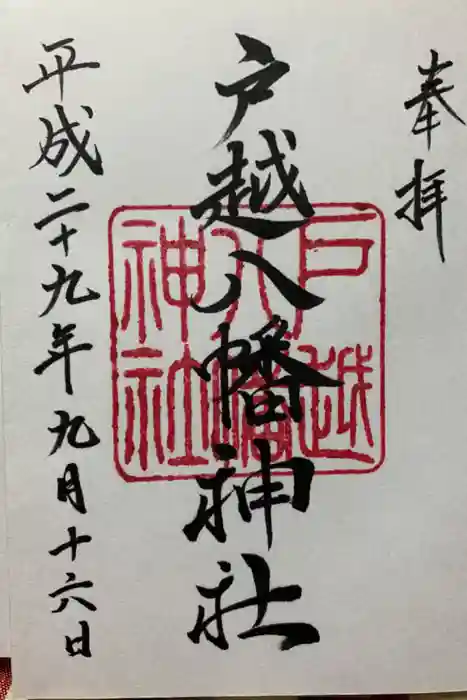 奉拝
戸越八幡神社
平成二十九年九月十六日
戸越
八幡
神社